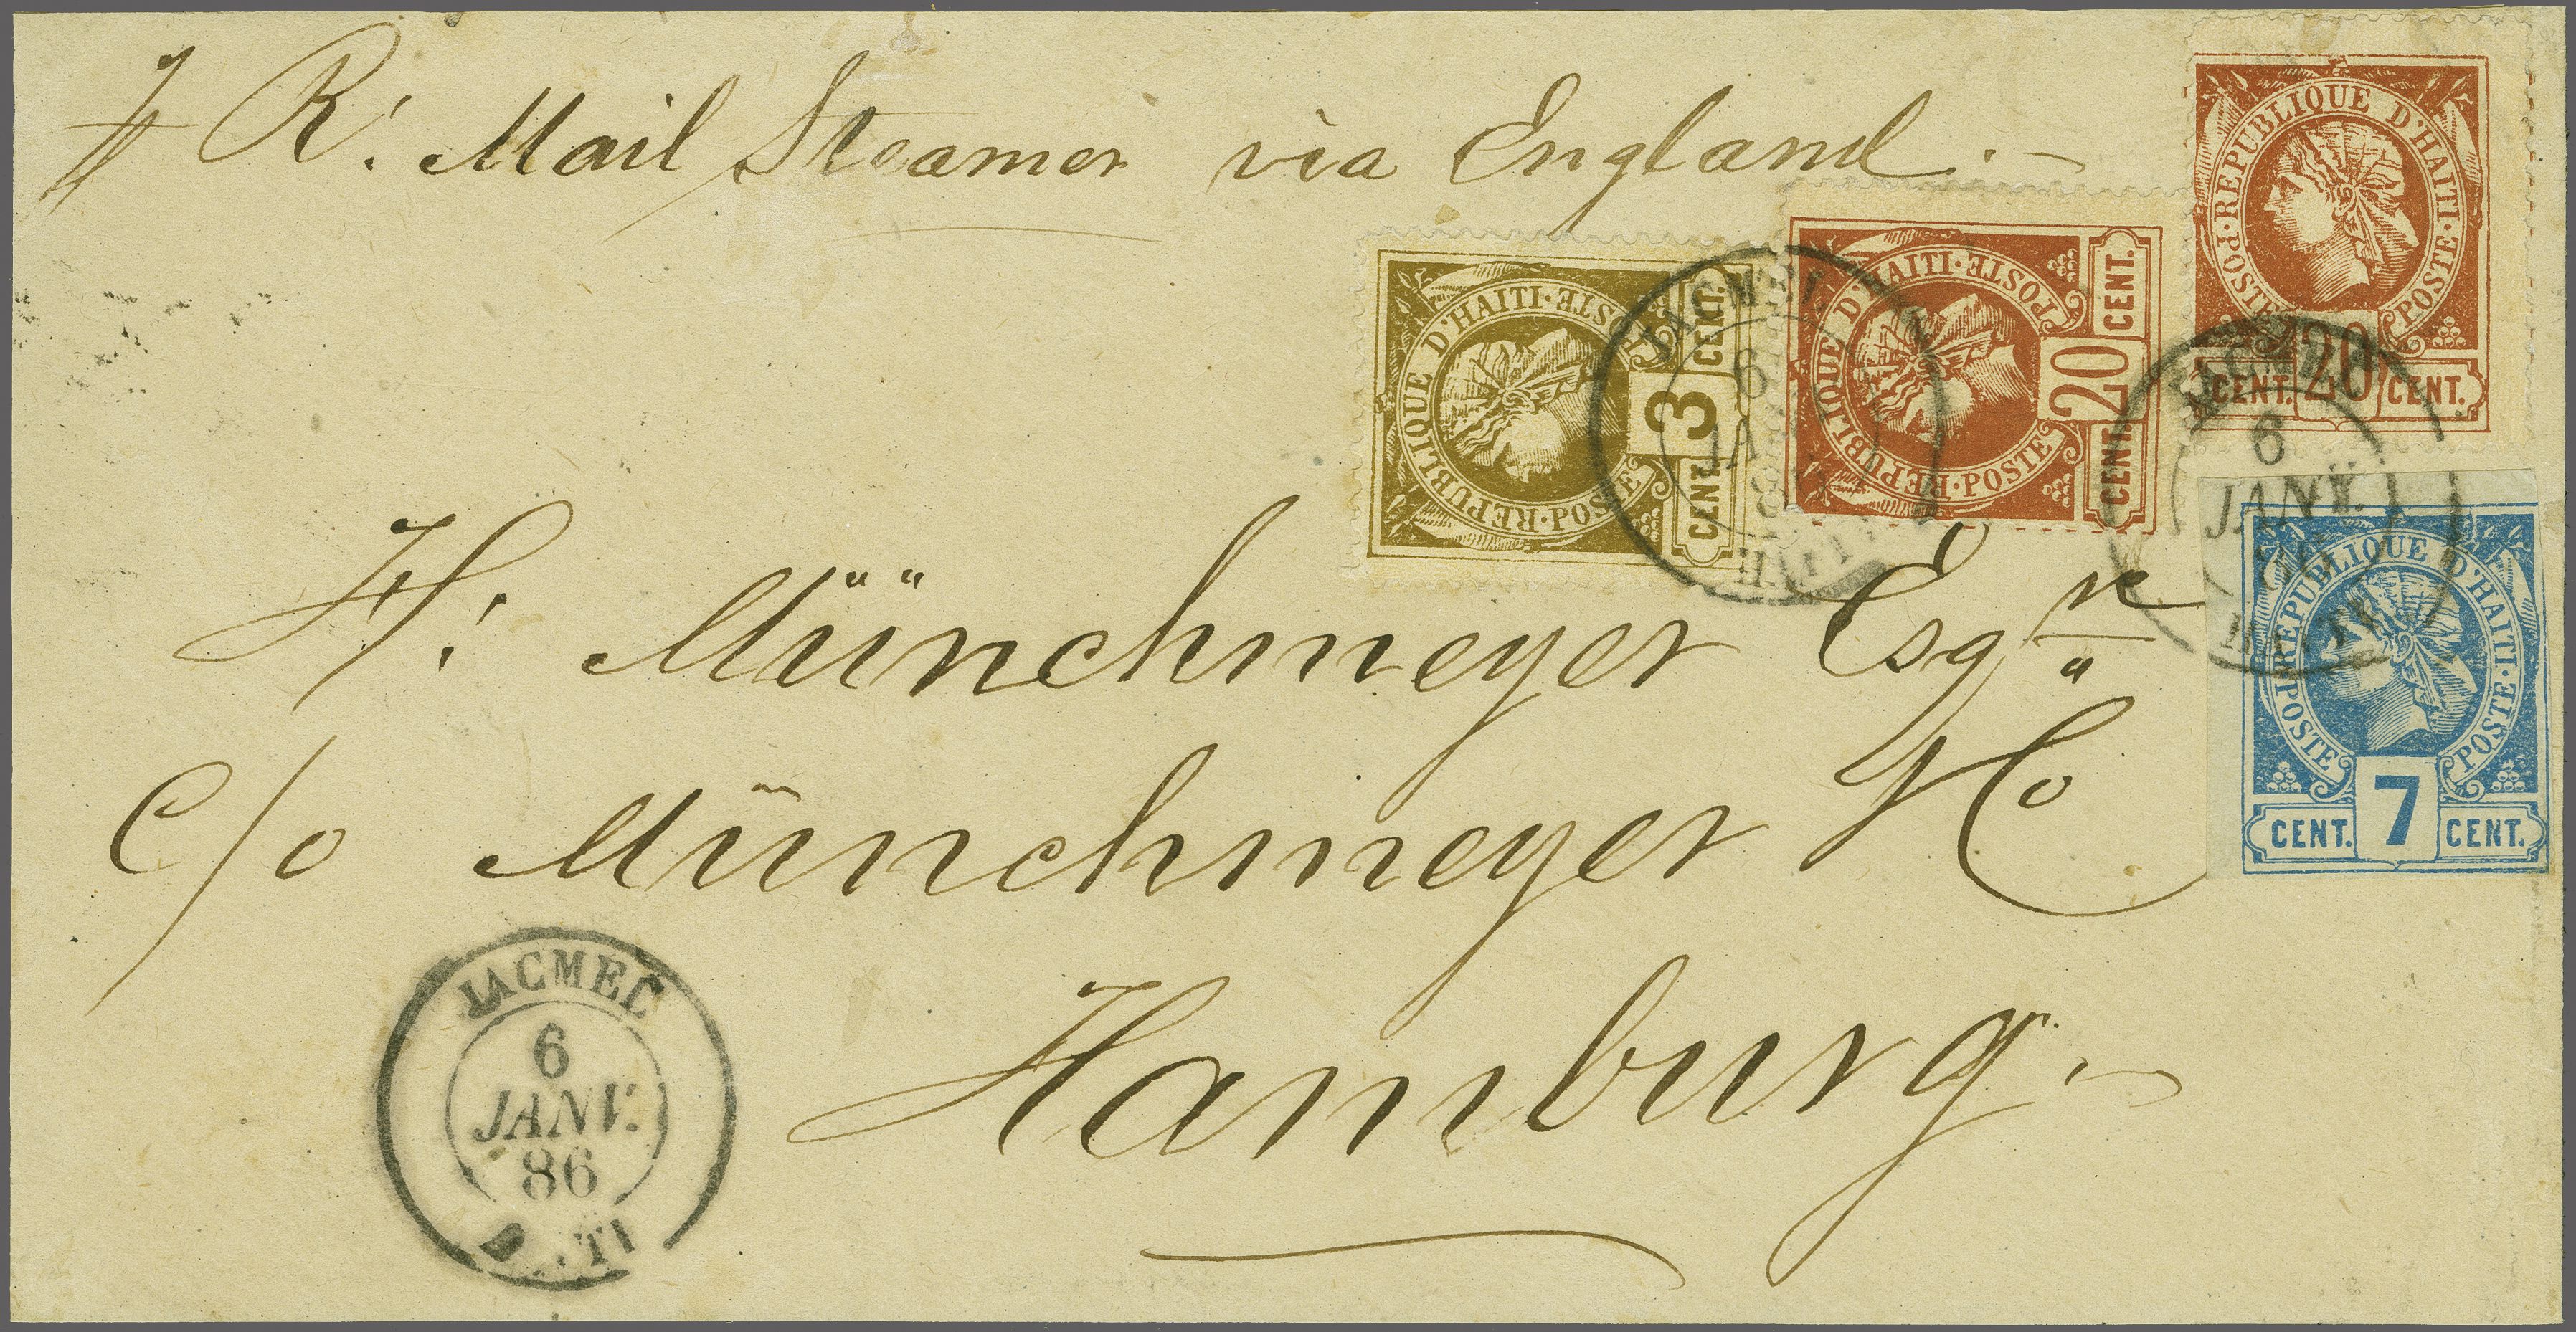 R! Mail Steamer via England.
H: Münchmeyer Esqre
c/o Münchmeyer & Co
Hamburg.
REPUBLIQUE D'HAITI · POSTE · POSTE
CENT. 3 CENT.
REPUBLIQUE D'HAITI · POSTE · POSTE
CENT. 20 CENT.
REPUBLIQUE D'HAITI · POSTE · POSTE
CENT. 20 CENT.
REPUBLIQUE D'HAITI · POSTE · POSTE
CENT. 7 CENT.
JACMEL
6
JACMEL
6
JANV.
JACMEL
6
JANV.
86